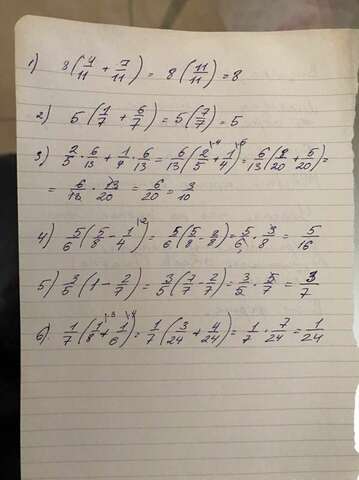 1) 8(4/11 + 7/11) = 8(11/11) = 8
2) 5(1/7 + 6/7) = 5(7/7) = 5
3) 2/5 · 6/13 + 1/4 · 6/13 = 6/13(2/5\4 + 1/4\5) = 6/13(8/20 + 5/20) =
= 6/13 · 13/20 = 6/20 = 3/10
4) 5/6(5/8 - 1/4\2) = 5/6(5/8 - 2/8) = 5/6 · 3/8 = 5/16
5) 3/5(1 - 2/7) = 3/5(7/7 - 2/7) = 3/5 · 5/7 = 3/7
6) 1/7(1/8\3 + 1/6\4) = 1/7(3/24 + 4/24) = 1/7 · 7/24 = 1/24